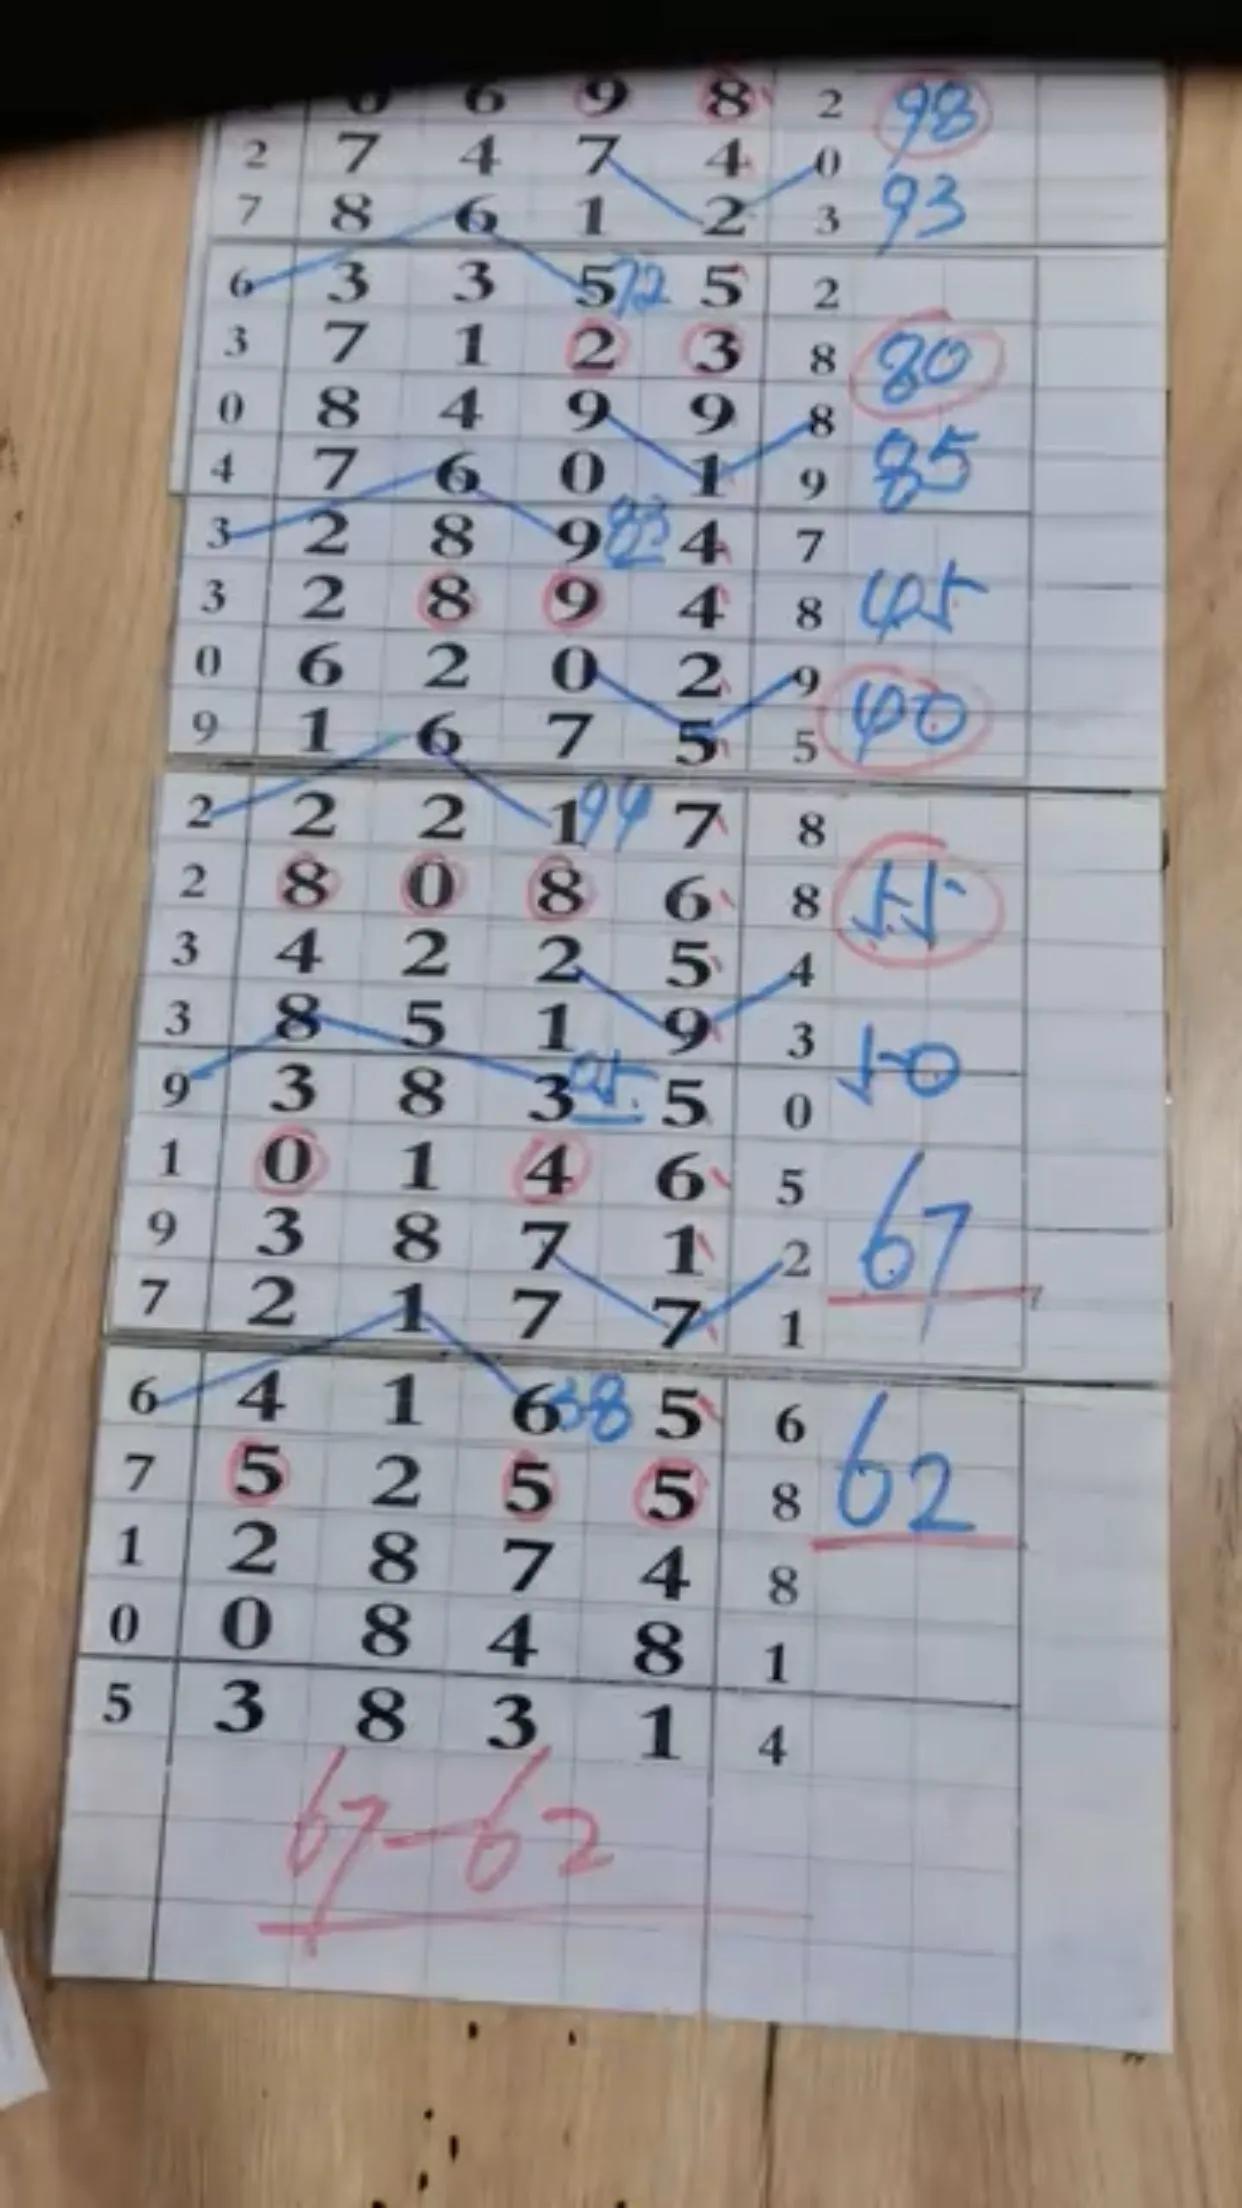 6 9 8 2 98
2 7 4 7 4 0
7 8 6 1 2 3 93
6 3 3 5 72 5 2
3 7 1 2 3 8 80
0 8 4 9 9 8
4 7 6 0 1 9 85
3 2 8 9 83 4 7
3 2 8 9 4 8 45
0 6 2 0 2 9
9 1 6 7 5 5 40
2 2 2 1 94 7 8
2 8 0 8 6 8 55
3 4 2 2 5 4
3 8 5 1 9 3 50
9 3 8 3 5 0
1 0 1 4 6 5
9 3 8 7 1 2 67
7 2 1 7 7 1
6 4 1 6 38 5 6
7 5 2 5 5 8 62
1 2 8 7 4 8
0 0 8 4 8 1
5 3 8 3 1 4
67-62